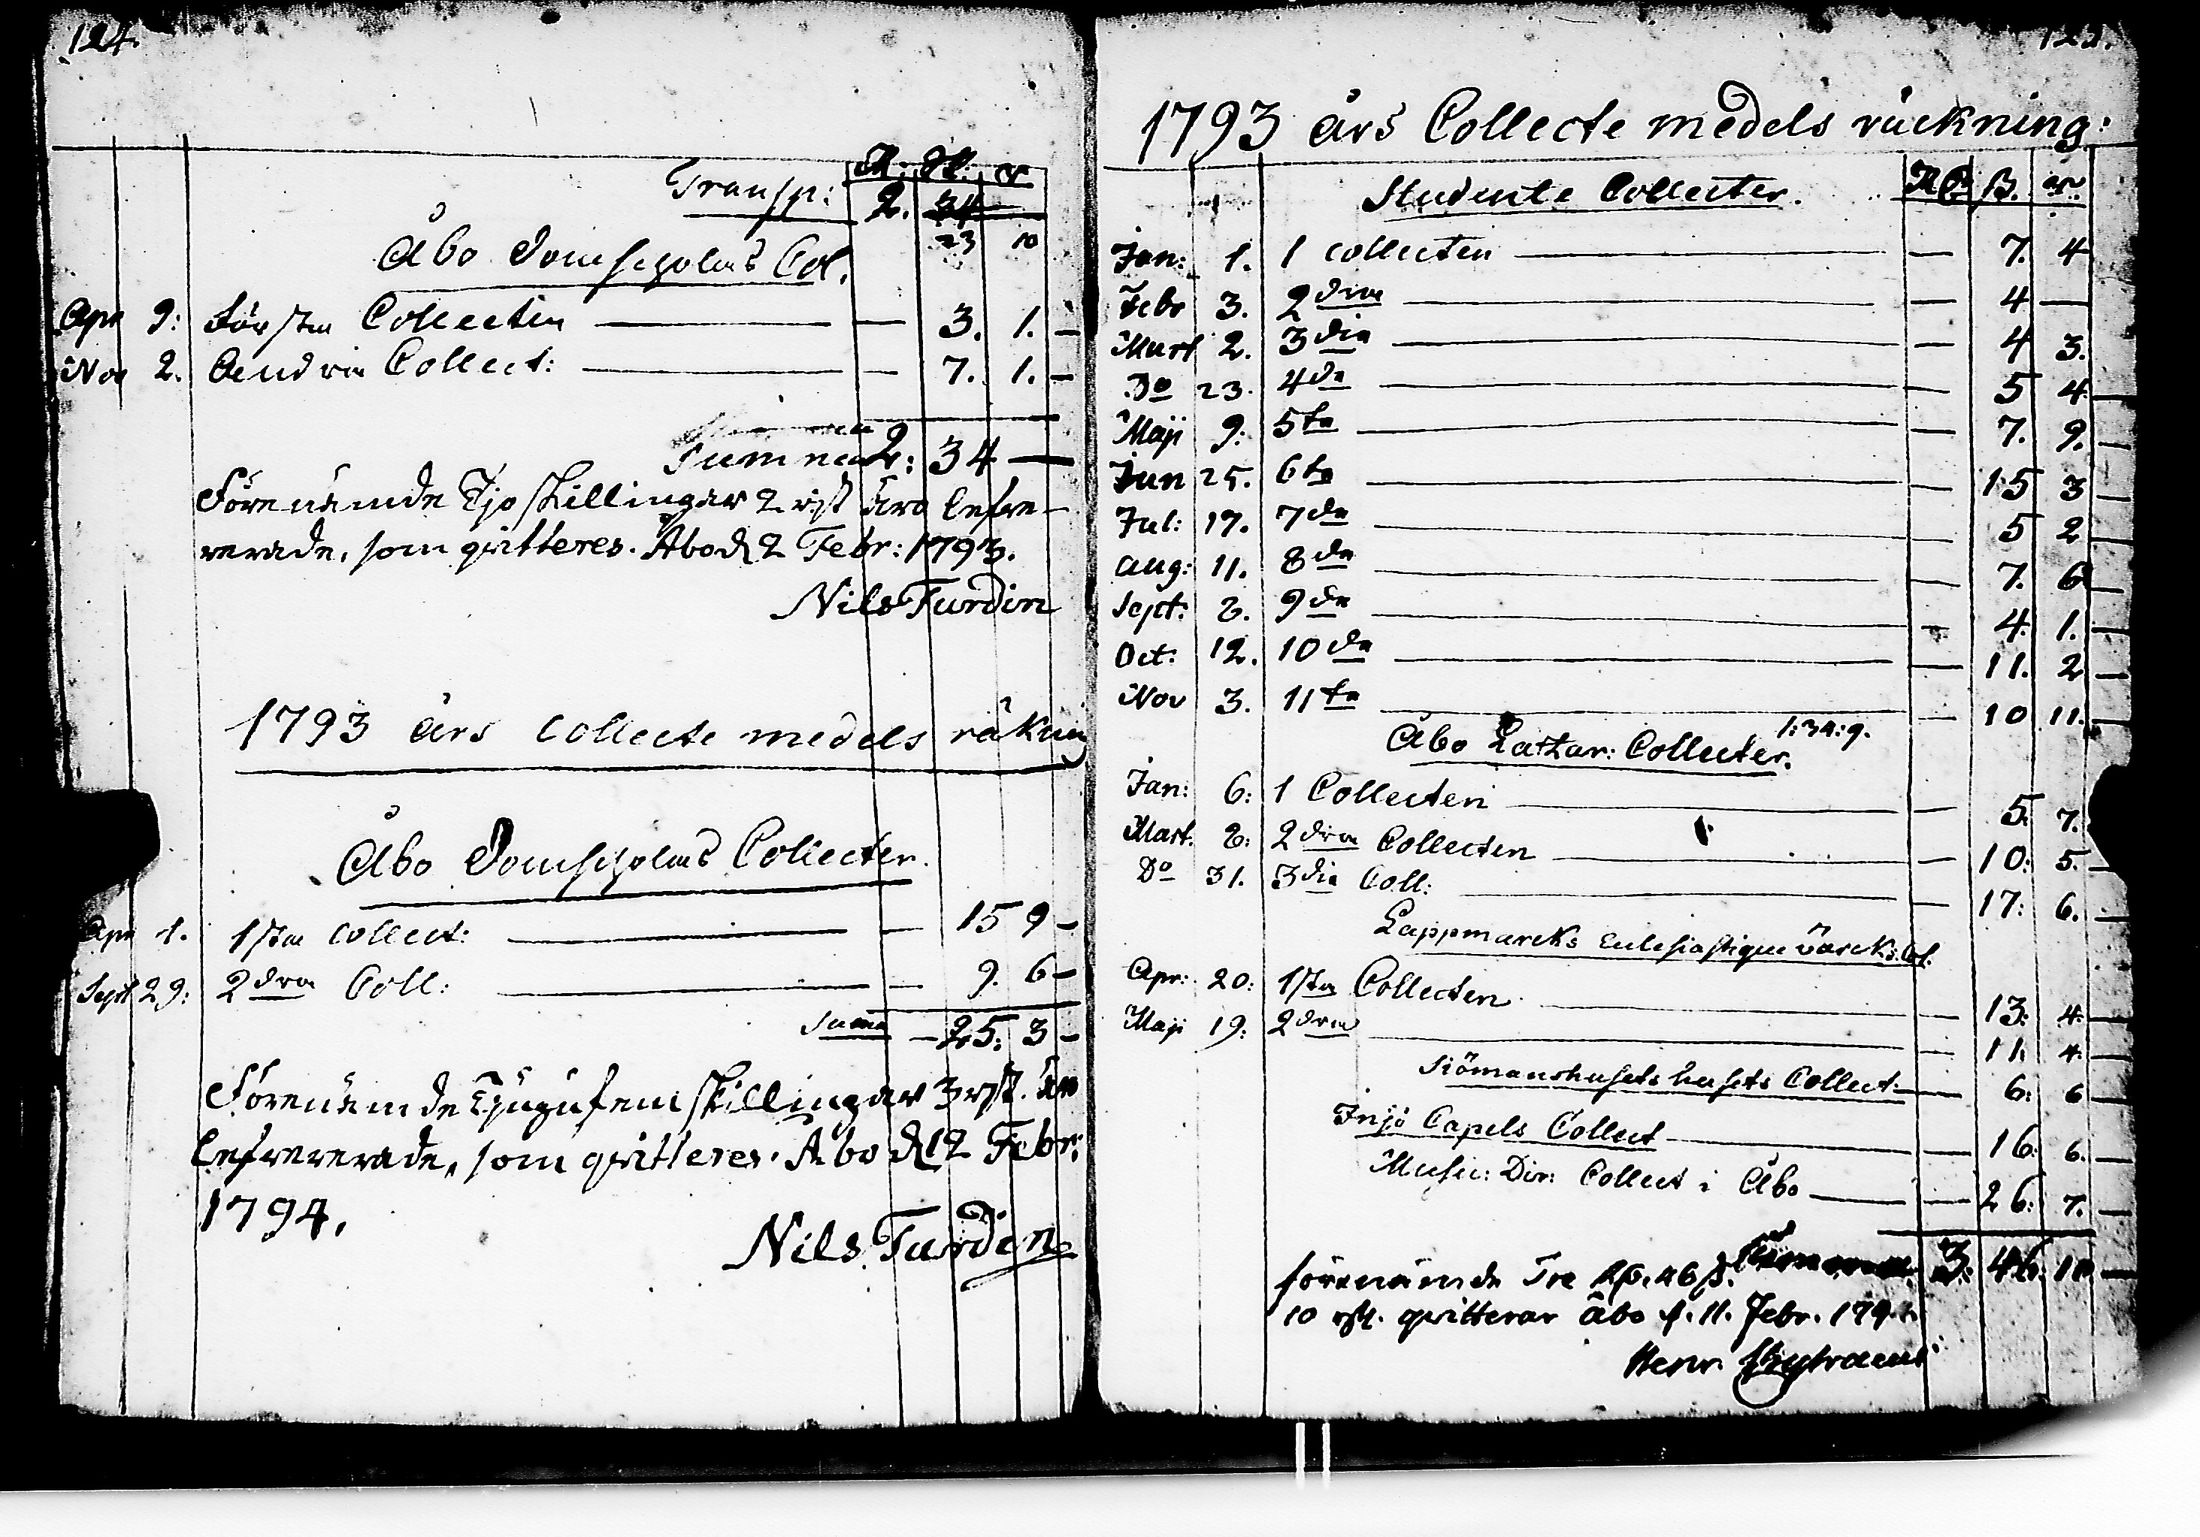 124.
Transp: 2. 34
23 10
Åbo Domscholas Col.
Apr 9: Första Collecten — 3. 1. —
Nov 2. Andra Collect: — 7. 1. —
Summa 2: 34 —
Förenämde Tjo skillingar 2 rst äro lefre-
rerade, som qvitteres. Åbo d 2 Febr: 1793.
Nils Turdin
1793 års Collecte medels räkning
Åbo Domscholas Collecter.
Apr 1. 1sta Collect: — 15 9 —
Sept 29: 2dra Coll: — 9. 6 —
Summa — 25: 3 —
Förenämde Tjugufem skillingar 3 rst. äro
lefrererade, som qvitteres. Åbo d 12 Febr:
1794.
Nils Turdin
1793 års Collecte medels räckning:
Studente Collecter. B.
Jan: 1. 1 collecten — 7. 4
Febr 3. 2dra — 4 —
Mart 2. 3dia — 4 3.
Do 23. 4da — 5 4.
Maji 9: 5ta — 7. 9.
Jun 25. 6ta — 15 3
Jul: 17. 7da — 5 2
Aug: 11. 8da — 7. 6
Sept: 8. 9da — 4. 1.
Oct: 12. 10da — 11. 2
Nov 3. 11ta — 10 11.
Åbo Lazar: Collecter. 1:34:9.
Jan: 6: 1 Collecten — 5. 7.
Mart. 8: 2dra Collecten — 10: 5.
Do 31. 3dia Coll: — 17: 6.
Lappmarcks Eclesiastique värck: Col.
Apr: 20: 1sta Collecten — 13: 4.
Maji 19: 2dra — 11. 4.
Siömanshusets husets Collect: — 6: 6
Injö Capels Collect — 16: 6.
Music: Dir: Collect i Åbo — 26: 7.
Summa 3. 46. 10 —
förenämde Tre 46
10 rst. qvitterar Åbo d. 11. Febr.
Henr.